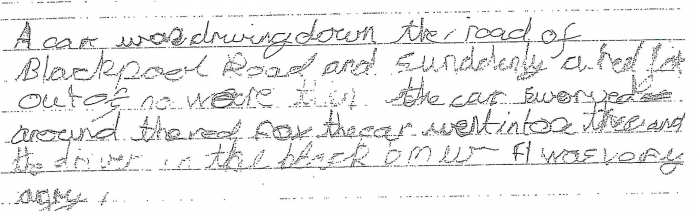 A car was driving down the road of
Blackpool Road and sunddenly a red
out of no were the car sweryed
around the red fox the car went into a tree and
the driver in the black BMW was very
agry.